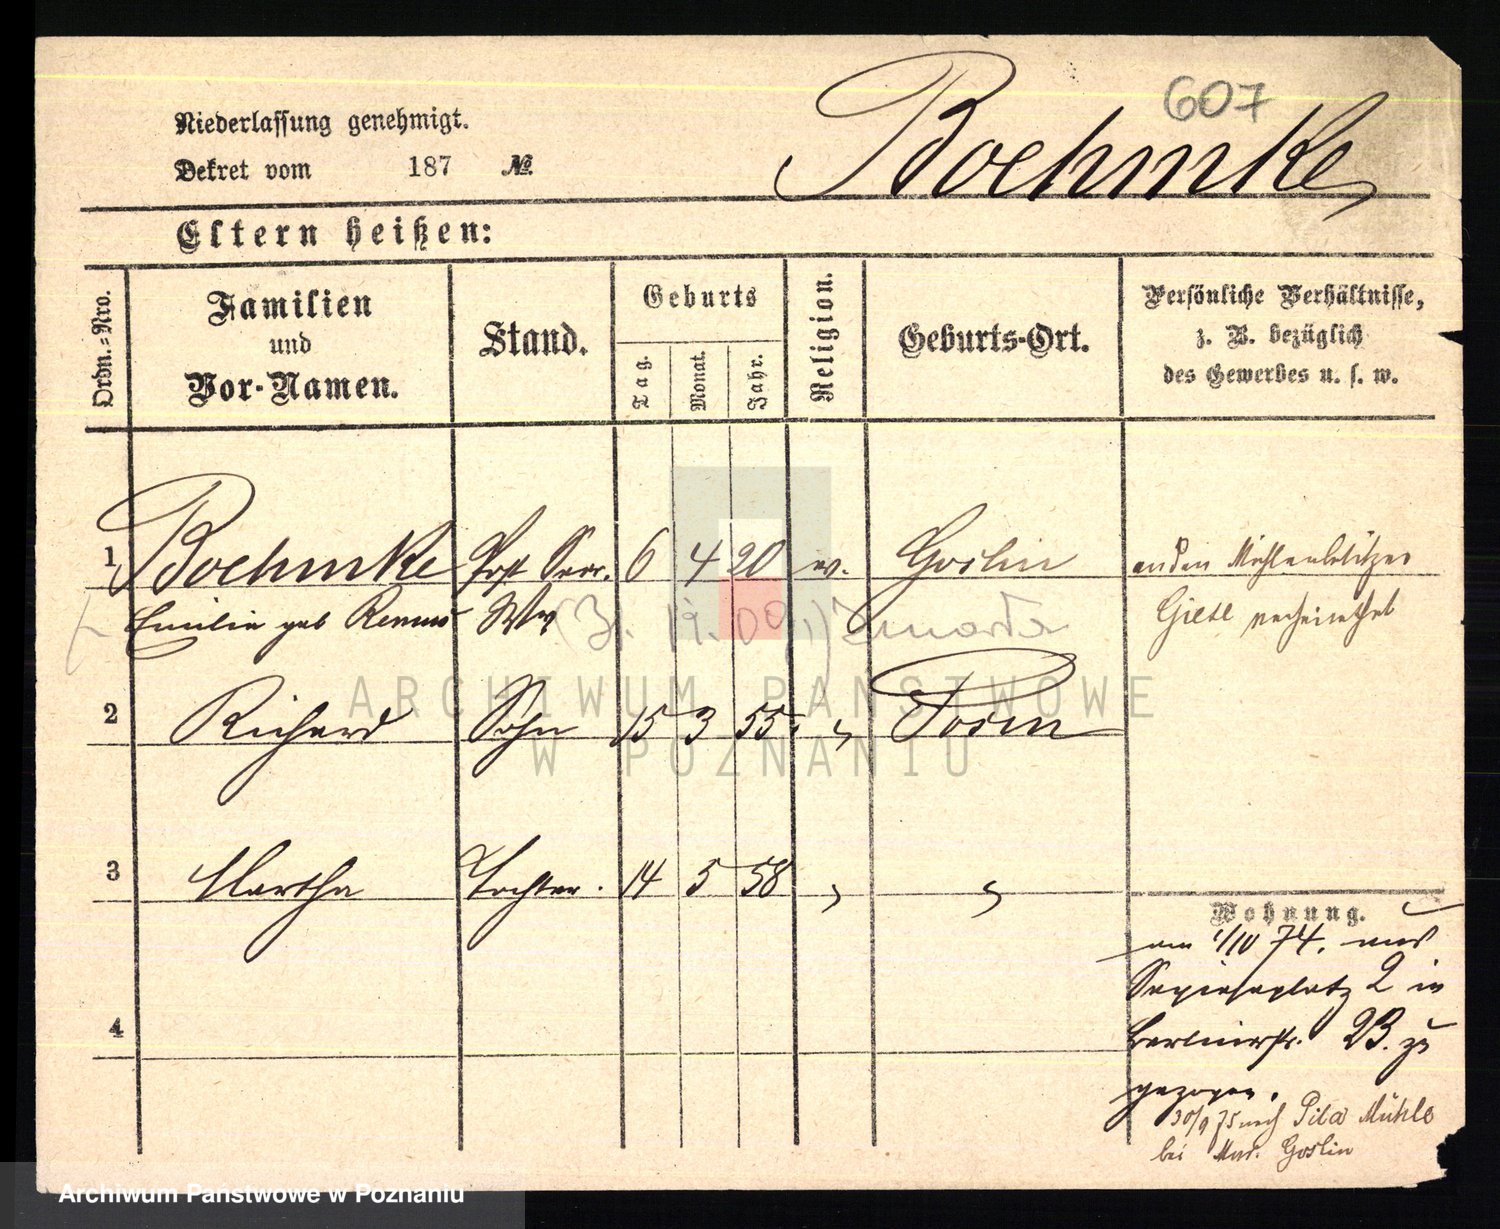 607
Niederlassung genehmigt.
Boehmke
Dekret vom 187 №
Eltern heißen:
Ordn.=Nro.
Familien
und
Vor-Namen.
Stand.
Geburts
Tag.
Monat.
Jahr.
Religion.
Geburts-Ort.
Persönliche Verhältnisse,
z. B. bezüglich
des Gewerbes u. s. w.
1 Boehmke Post Secr. 6 4 20 ev. Goslin
an den Mühlenbesitzer
Emilie geb Remus Ww
Giese verheirathet
(3. 09.) Zmarła
2 Richard Sohn 15 3 55. " Posen
3 Martha Tochter. 14 5 58 " "
Wohnung.
am 1/10 74. aus
Sapiehaplatz 2 in
4
Berlinerstr. 23. zu
gezogen.
30/9 75 nach Pila Mühle
bei Mur. Goslin
ARCHIWUM PAŃSTWOWE
W POZNANIU
Archiwum Państwowe w Poznaniu